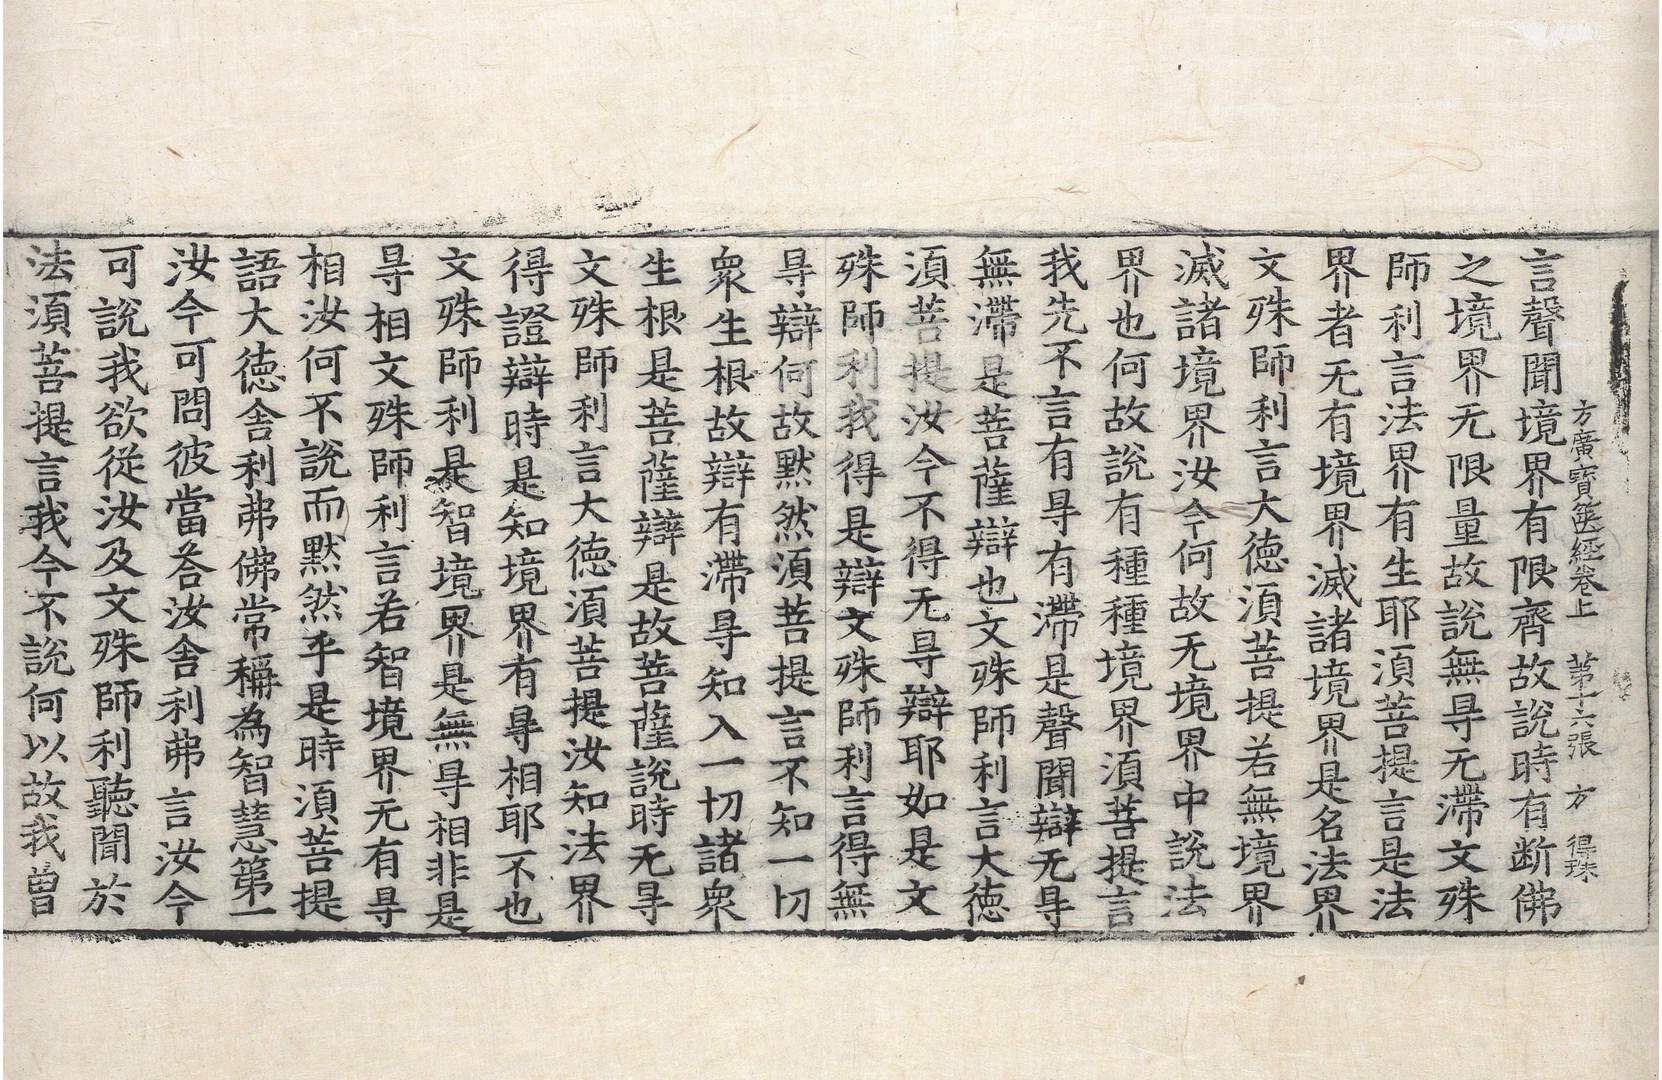 方廣寶篋經卷上　第十六張　方　得珠
言聲聞境界有限齊故說時有断佛
之境界无限量故說無㝵无滯文殊
師利言法界有生耶湏菩提言是法
界者无有境界滅諸境界是名法界
文殊師利言大徳湏菩提若無境界
滅諸境界汝今何故无境界中說法
界也何故說有種種境界湏菩提言
我先不言有㝵有滯是聲聞辯无㝵
無滯是菩薩辯也文殊師利言大徳
湏菩提汝今不得无㝵辯耶如是文
殊師利我得是辯文殊師利言得無
㝵辯何故默然湏菩提言不知一切
衆生根故辯有滯㝵知入一切諸衆
生根是菩薩辯是故菩薩說時无㝵
文殊師利言大徳湏菩提汝知法界
得證辯時是知境界有㝵相耶不也
文殊師利是智境界是無㝵相非是
㝵相文殊師利言若智境界无有㝵
相汝何不說而默然乎是時湏菩提
語大徳舍利弗佛常稱為智慧第一
汝今可問彼當荅汝舍利弗言汝今
可說我欲從汝及文殊師利聽聞於
法湏菩提言我今不說何以故我曽